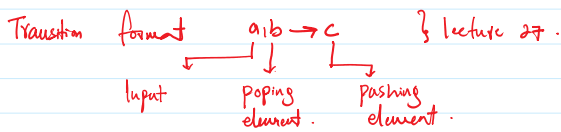 Transition format a,b → c } lecture 27.
Input poping pushing
element. element.